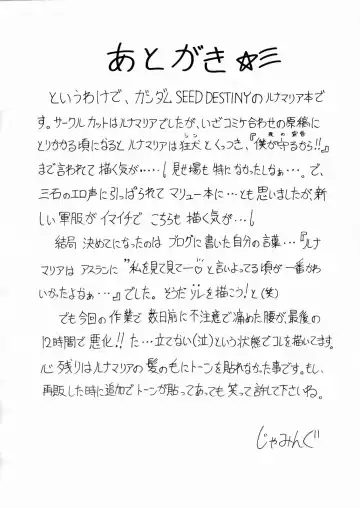 あとがき☆彡
というわけで、ガンダムSEED DESTINYのルナマリア本で
す。サークルカットはルナマリアでしたが、いざコミケ合わせの原稿に
とりかかる頃になるとルナマリアは狂犬とくっつき、『僕が守るから!!』
まで言われて描く気が・・・・・!見せ場も特になかったしなぁ・・・。で、
三石のエロ声に引っぱられてマリュー本に・・・とも思いましたが、新
しい軍服がイマイチで こちらも 描く気が・・・!
結局 決めてになったのは ブログに書いた自分の言葉・・・『ルナ
マリアは アスランに "私を見て見て〜♡"と言いよってる頃が一番かわ
いかったよなぁ・・・』でした。そうだソレを描こう!と(笑)
でも今回の作業で 数日前に不注意で痛めた腰が、最後の
12時間で悪化!! た・・・立てない(泣)という状態でコレを描いてます。
心残りはルナマリアの髪の毛にトーンを貼れなかった事です。もし、
再販した時に追加でトーンが貼ってあっても 笑って許して下さいね。
じゃみんぐ